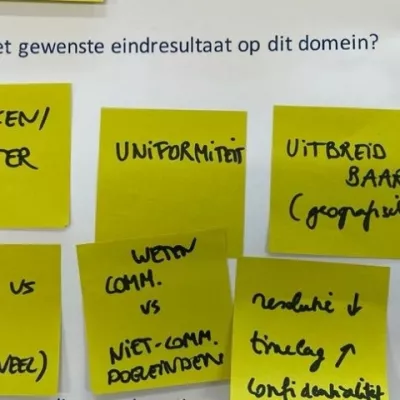 et gewenste eindresultaat op dit domein?
EN/
TER
UNIFORMITEIT
UITBREID
BAAR
(geografisch
VS
VEEL)
WETEN
COMM.
VS
NIET-COMM.
DOELEINDEN
resolutie ↓
timelag ↑
confidentialitet